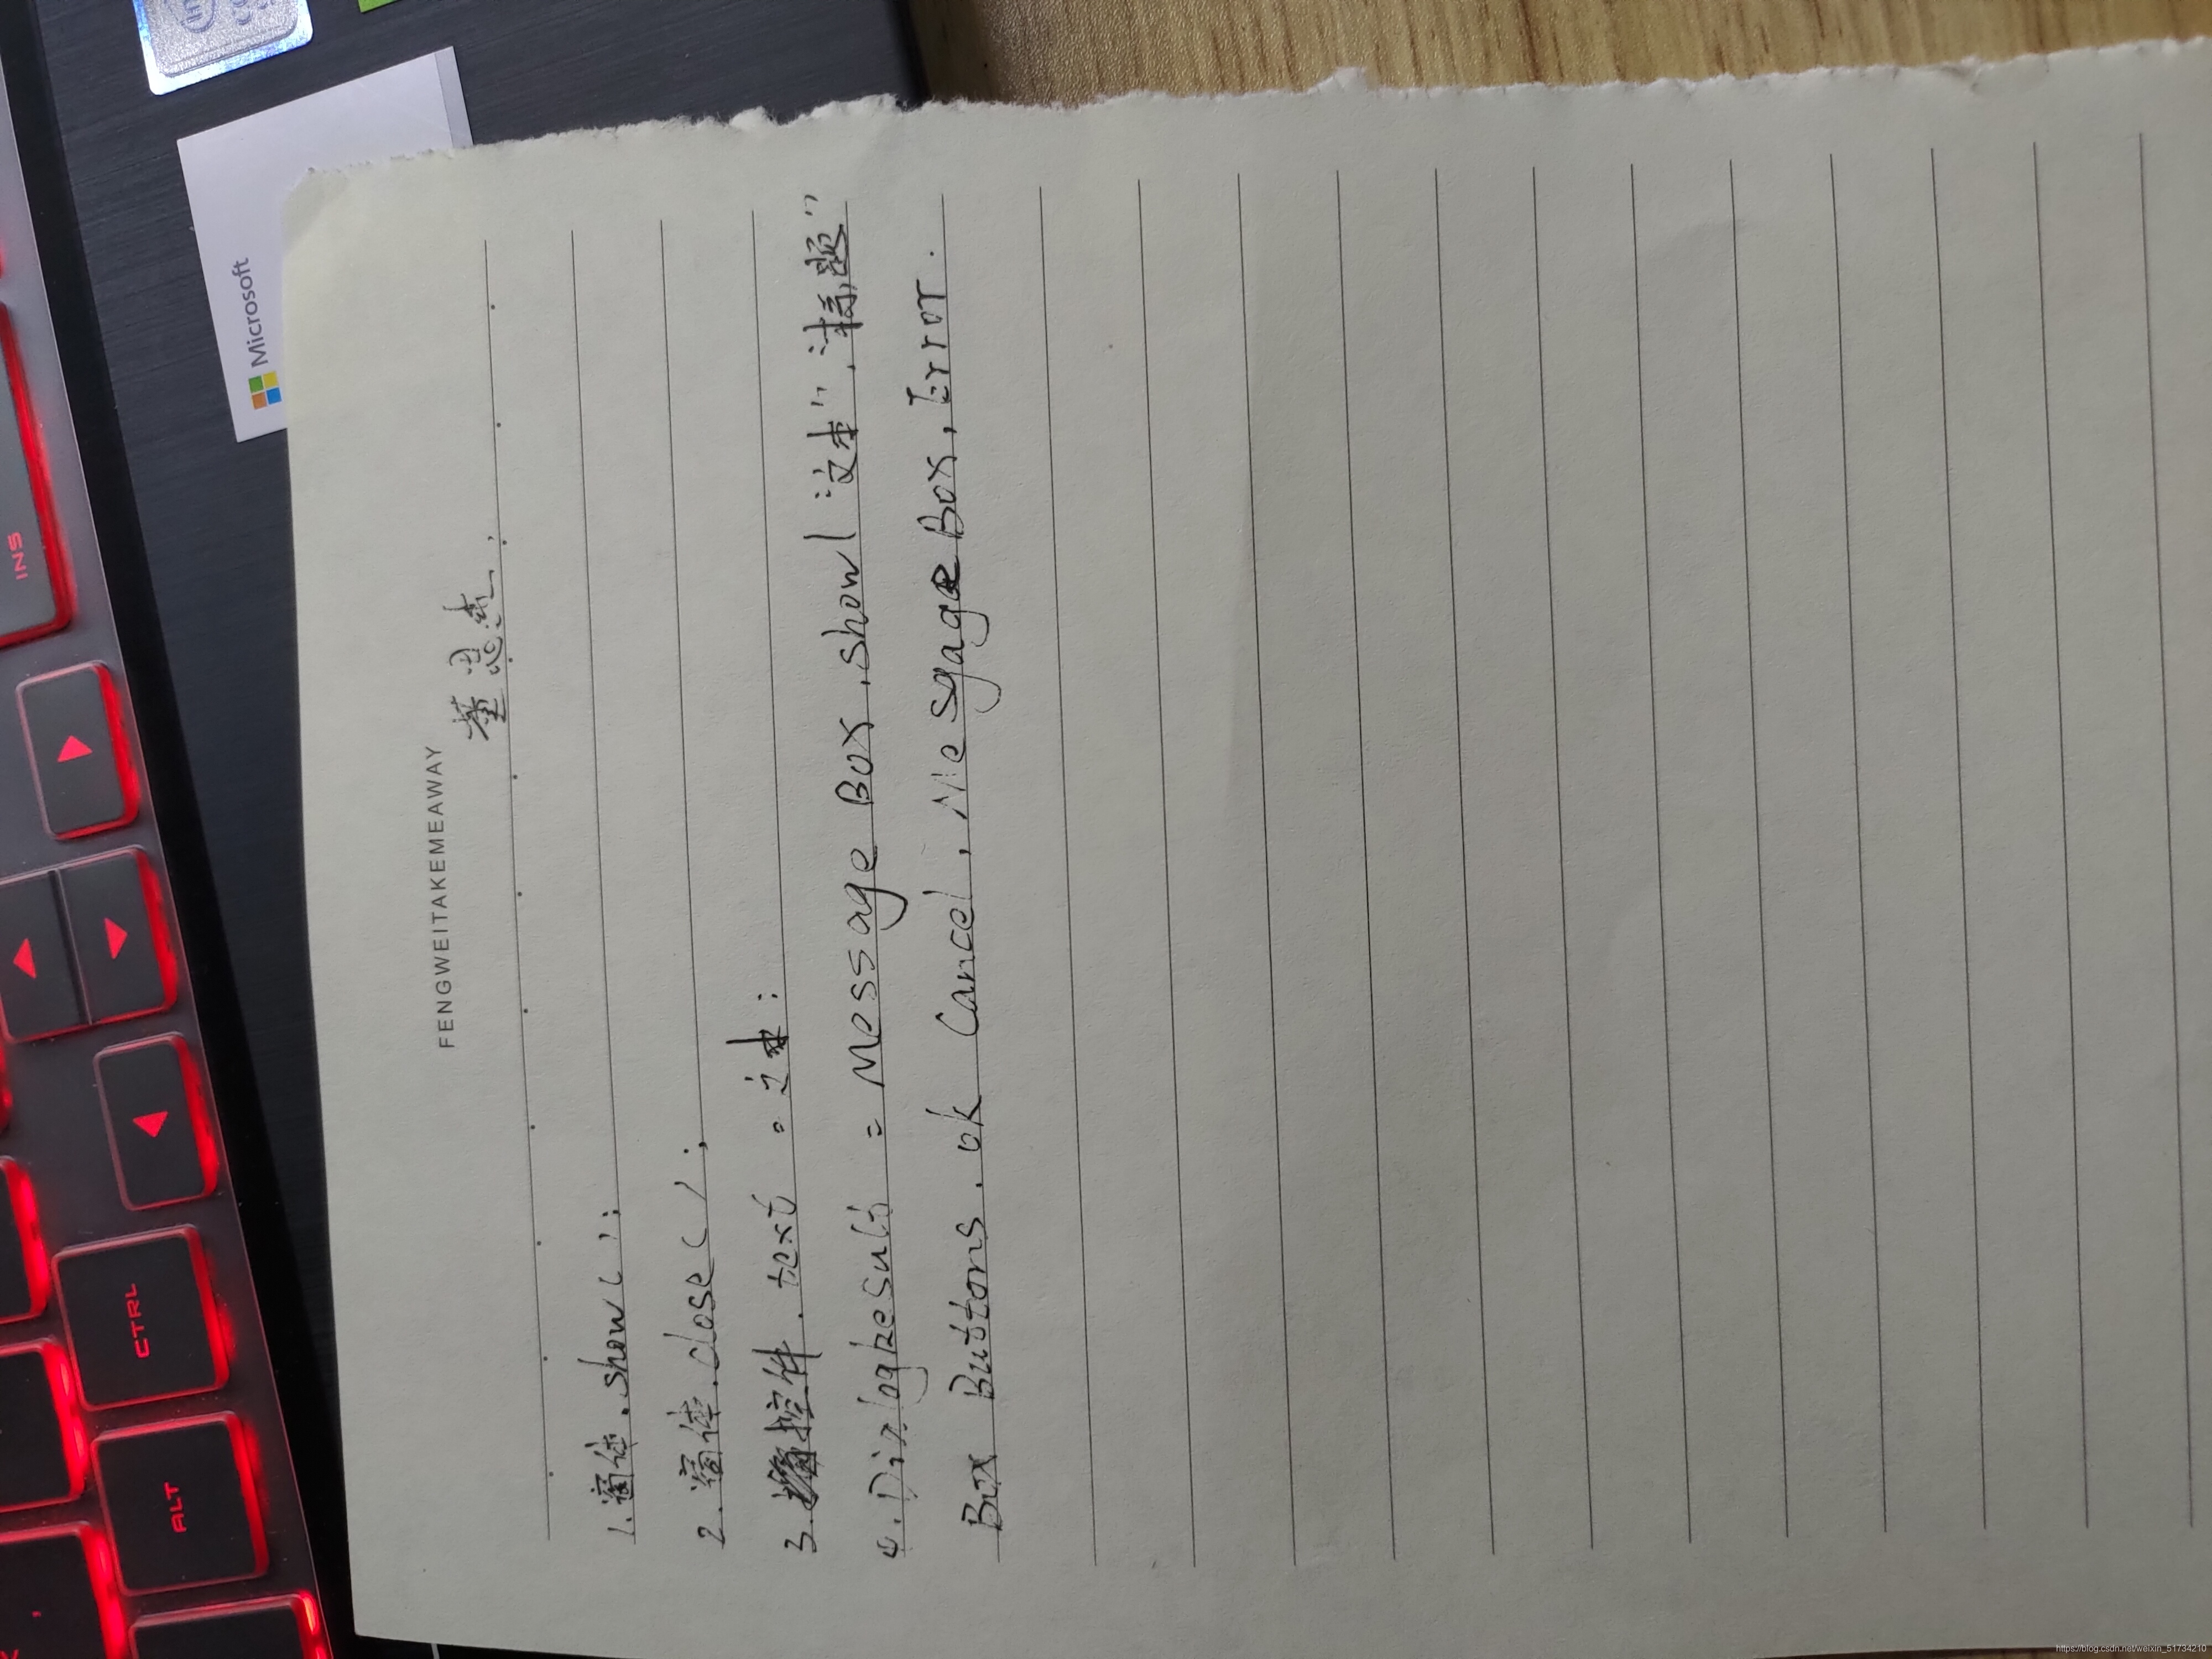 FENGWEITAKEMEAWAY
董思杰
1. 窗体.show();
2. 窗体.close();
3. 控件.text = 文本;
4. DialogResult = Message Box.show("文本".标题"
Box Buttons.ok Cancel, Me sgage Box, Error.
Microsoft
INS
CTRL
ALT
https://blog.csdn.net/weixin_51734210